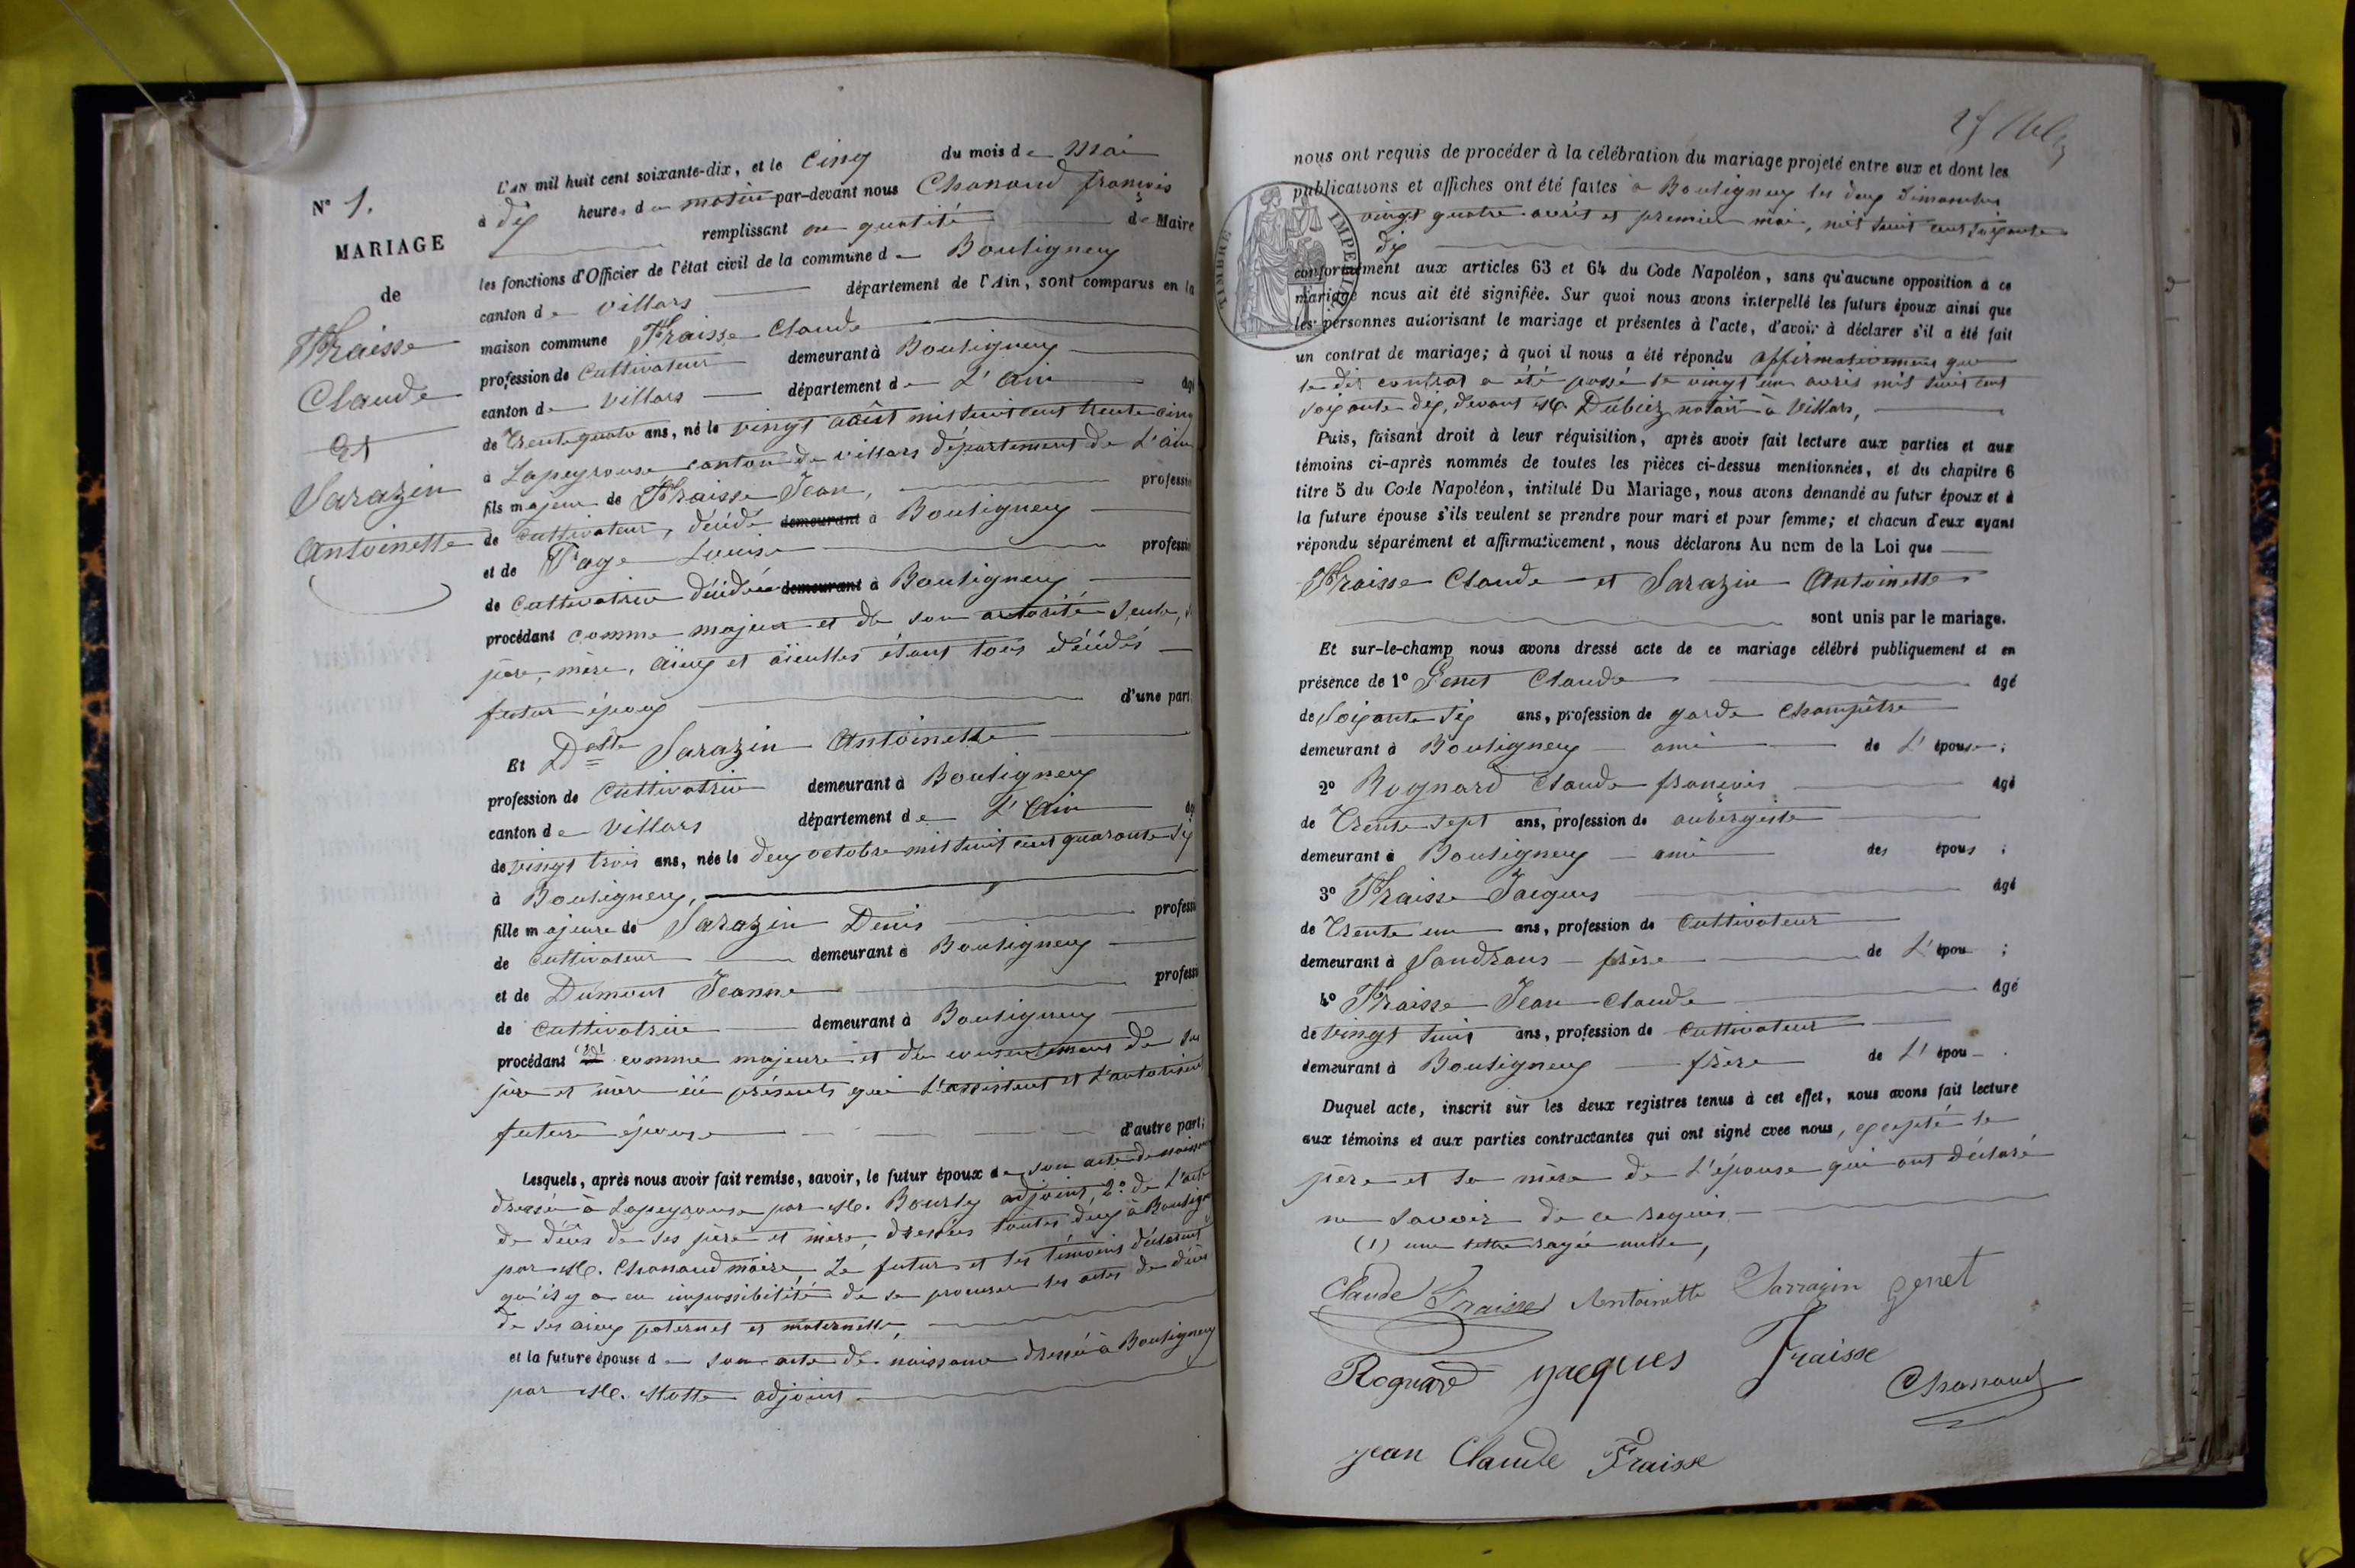 N° 1.
MARIAGE
de
Fraisse
Claude
Et
Sarazin
Antoinette
L'AN mil huit cent soixante-dix, et le cinq du mois de Mai
à dix heures du matin par-devant nous Chanaud françois
remplissant en qualité de Maire
les fonctions d'Officier de l'état civil de la commune de Bouligneux
canton de Villars département de l'Ain, sont comparus en la
maison commune Fraisse Claude
profession de Cultivateur demeurant à Bouligneux
canton de Villars département de L'Ain âgé
de Trente quatre ans, né le vingt août mil huit cent trente cinq
à Lapeyrouse canton de Villars département de L'ain
fils majeur de Fraisse Jean, professi
de cultivateur, décédé demeurant à Bouligneux
et de Page Louise professi
de Cultivatrice décédée demeurant à Bouligneux
procédant comme majeur et de son autorité seule, s
père, mère, aïeux et aïeulles étant tous décédés
futur époux d'une part;
Et Delle Sarazin Antoinette
profession de Cultivatrice demeurant à Bouligneux
canton de Villars département de L'Ain âgé
de vingt trois ans, née le deux octobre mil huit cent quarante six
à Bouligneux,
fille majeure de Sarazin Denis professi
de cultivateur demeurant à Bouligneux
et de Dumont Jeanne professi
de cultivatrice demeurant à Bouligneux
procédant (1) comme majeure et du consentement de ses
père et mère ici présents qui l'assistent et l'autorisent
future épouse d'autre part;
Lesquels, après nous avoir fait remise, savoir, le futur époux de son acte de naissance
dressé à Lapeyrouse par M. Bourly adjoint, 2° de l'acte
de décès de ses père et mère, dressés toutes deux à Bouligneux
par M. Chanaud maire, Le futur et les témoins déclarent
qu'il y a eu impossibilité de se procurer les actes de décès
de ses aieux paternel et maternelle,
et la future épouse de son acte de naissance dressé à Bouligneux
par M. Motte adjoint
nous ont requis de procéder à la célébration du mariage projeté entre eux et dont les
publications et affiches ont été faites à Bouligneux les deux dimanches
vingt quatre avril et premier mai, mil huit cent soixante
dix
conformément aux articles 63 et 64 du Code Napoléon, sans qu'aucune opposition à ce
mariage nous ait été signifiée. Sur quoi nous avons interpellé les futurs époux ainsi que
les personnes autorisant le mariage et présentes à l'acte, d'avoir à déclarer s'il a été fait
un contrat de mariage; à quoi il nous a été répondu affirmativement que
le dit contrat a été passé le vingt un avril mil huit cent
soixante dix, devant M. Dubiez notaire à Villars,
Puis, faisant droit à leur réquisition, après avoir fait lecture aux parties et aux
témoins ci-après nommés de toutes les pièces ci-dessus mentionnées, et du chapitre 6
titre 5 du Code Napoléon, intitulé Du Mariage, nous avons demandé au futur époux et à
la future épouse s'ils veulent se prendre pour mari et pour femme; et chacun d'eux ayant
répondu séparément et affirmativement, nous déclarons Au nom de la Loi que
Fraisse Claude et Sarazin Antoinette
sont unis par le mariage.
Et sur-le-champ nous avons dressé acte de ce mariage célébré publiquement et en
présence de 1° Genet Claude âgé
de Soixante six ans, profession de garde Champêtre
demeurant à Bouligneux ami de L'épouse;
2° Rognard Claude françois âgé
de Trente sept ans, profession de aubergiste
demeurant à Bouligneux ami des épous;
3° Fraisse Jacques âgé
de Trente un ans, profession de Cultivateur
demeurant à Sandrans frère de L'épou;
4° Fraisse Jean Claude âgé
de vingt huit ans, profession de Cultivateur
demeurant à Bouligneux frère de L'épou.
Duquel acte, inscrit sur les deux registres tenus à cet effet, nous avons fait lecture
aux témoins et aux parties contractantes qui ont signé avec nous, excepté le
père et la mère de l'épouse qui ont déclaré
ne savoir de ce requis
(1) une lettre rayée nulle,
Claude Fraisse Antoinette Sarrazin genet
Rognard jacques Fraisse
Chanaud
jean Claude Fraisse
TIMBRE IMPERIAL